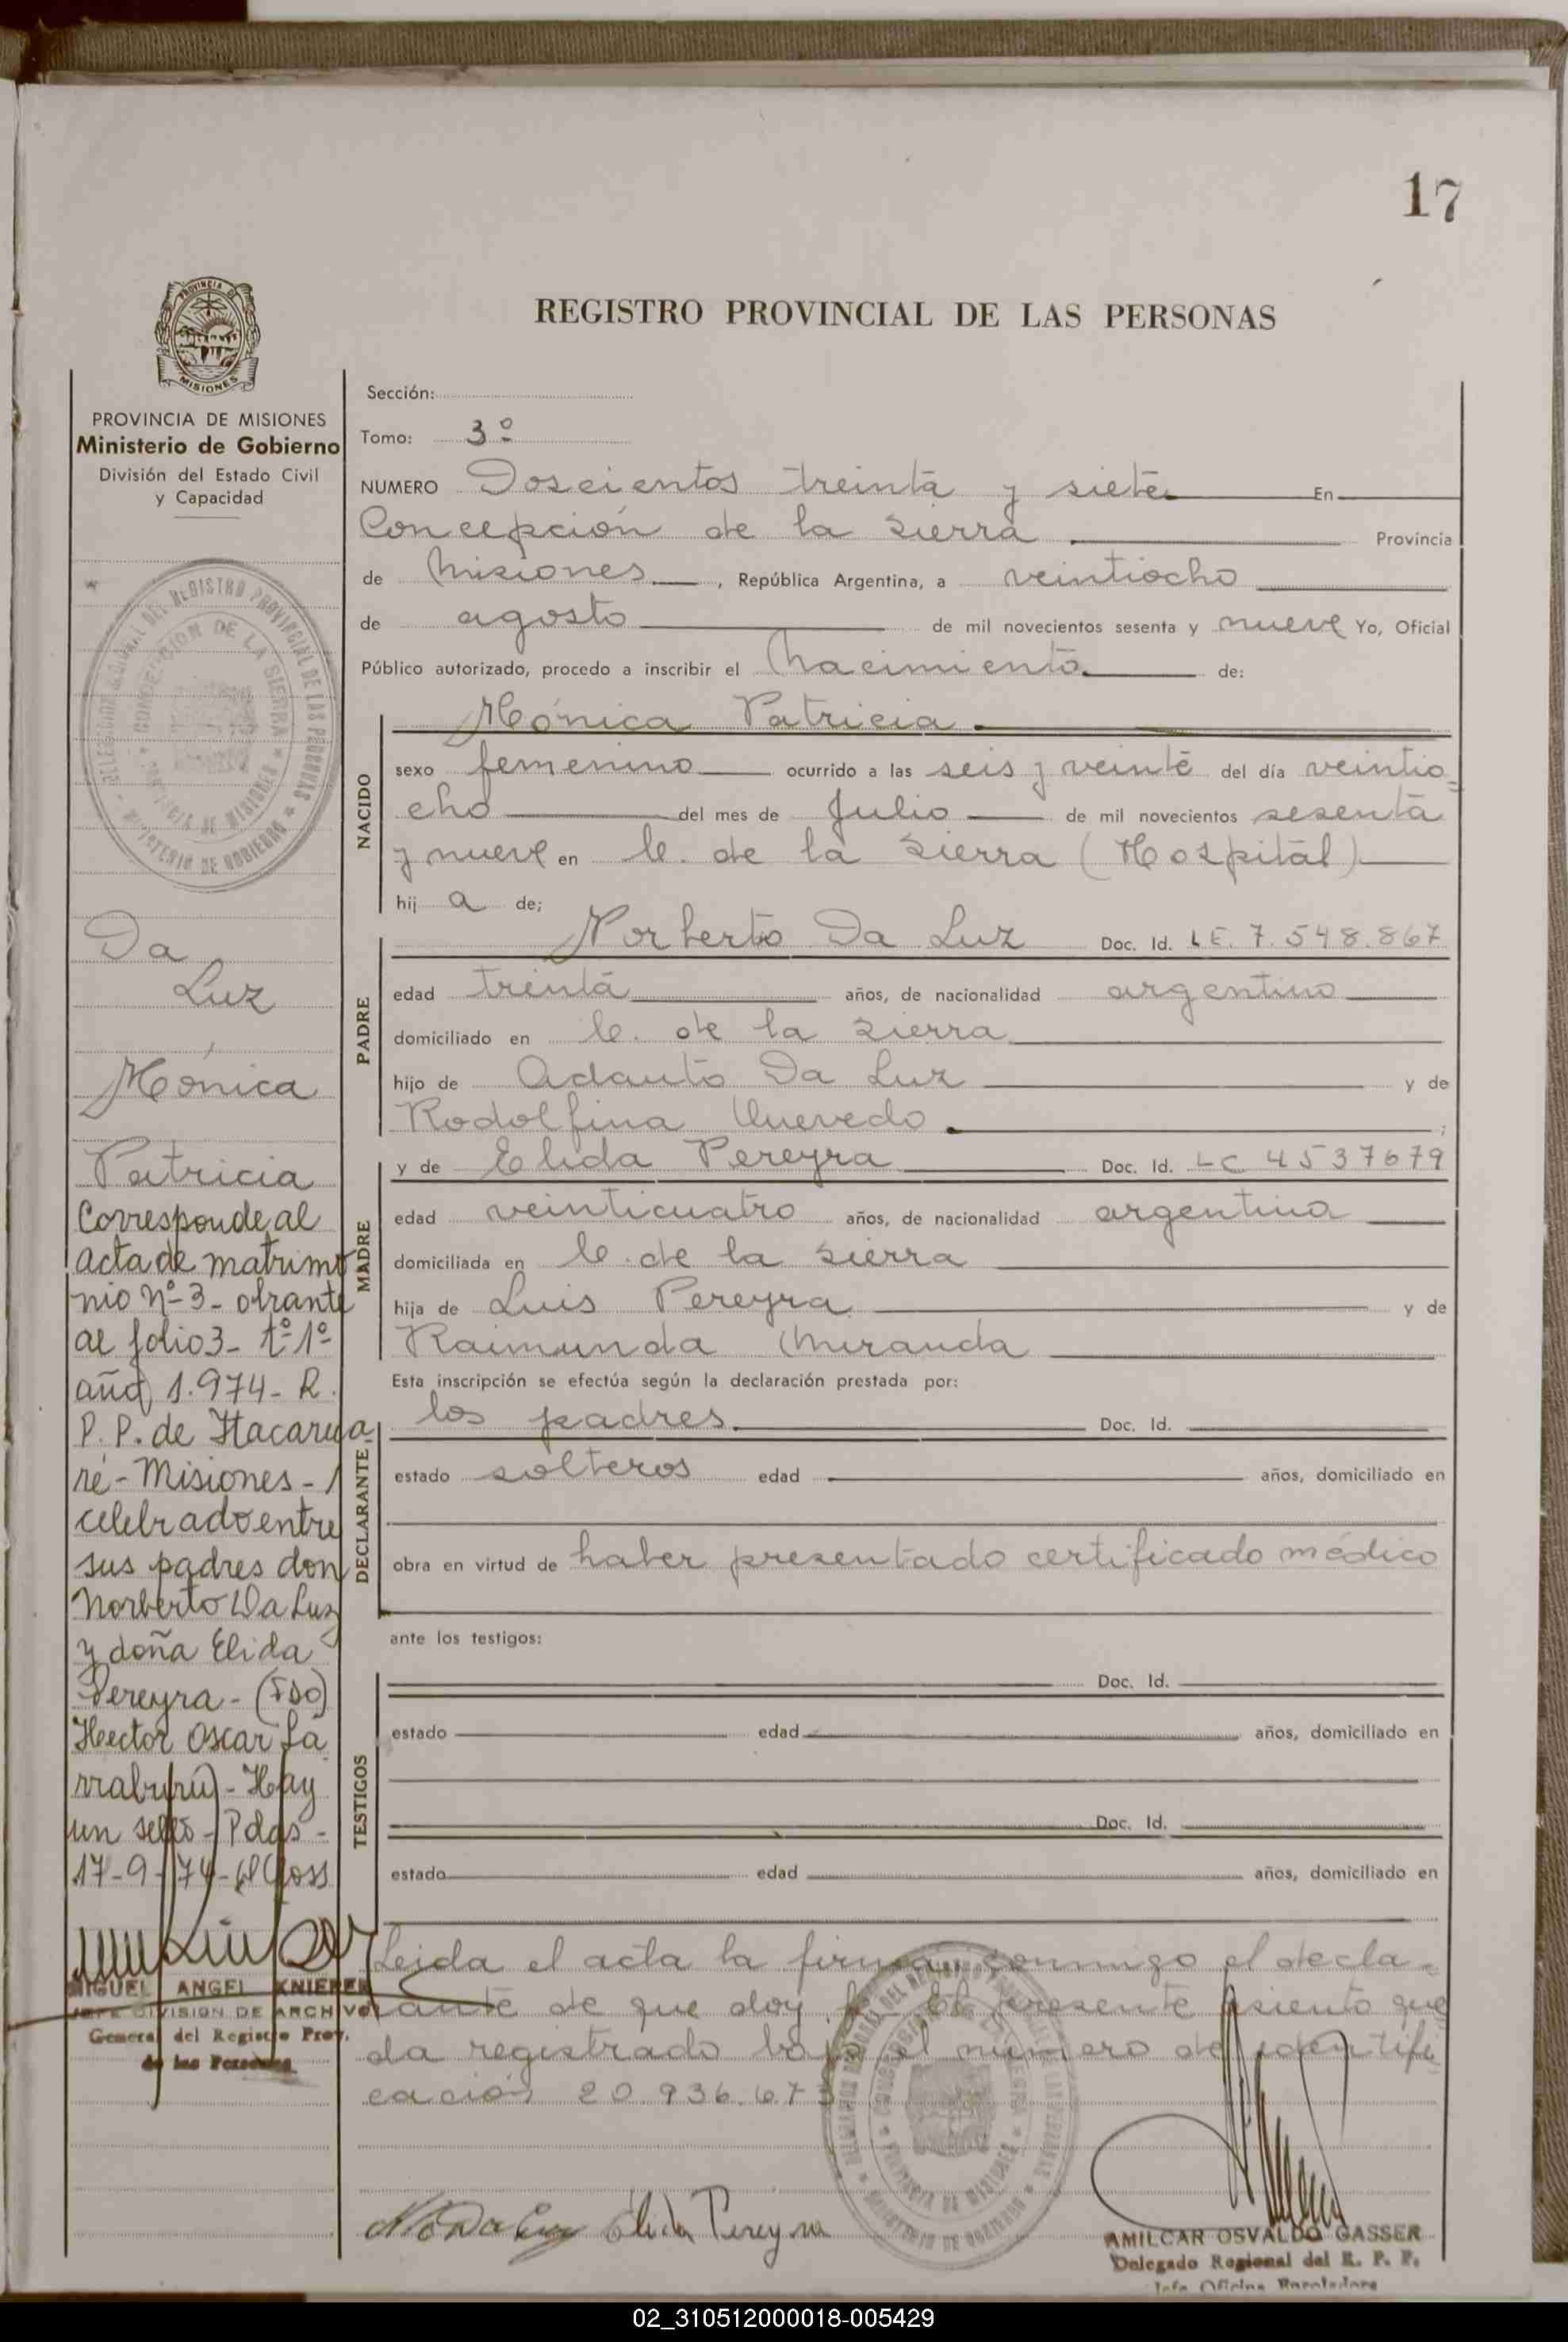 17
REGISTRO PROVINCIAL DE LAS PERSONAS
PROVINCIA DE MISIONES
Ministerio de Gobierno
División del Estado Civil
y Capacidad
Da
Luz
Mónica
Patricia
Corresponde al
acta de matrimo
nio nº 3- obrante
al folio 3- tº 1º
año 1.974- R.
P. P. de Itacarua
ré- Misiones-
celebrado entre
sus padres don
Norberto Da Luz
y doña Elida
Pereyra- (Fdo)
Hector Oscar La
rraburú)- Hay
un sello- Pdas-
17-9-74-
MIGUEL ANGEL KNIEPER
JEFE DIVISION DE ARCHIVO
General del Registro Prov.
de las Personas
Sección:
Tomo: 3º
NUMERO Doscientos treinta y siete En
Concepción de la Sierra Provincia
de Misiones, República Argentina, a veintiocho
de agosto de mil novecientos sesenta y nueve Yo, Oficial
Público autorizado, procedo a inscribir el Nacimiento de:
NACIDO
Mónica Patricia
sexo femenino ocurrido a las seis y veinte del día veintio=
cho del mes de Julio de mil novecientos sesenta
y nueve en C. de la Sierra (Hospital)
hij a de;
PADRE
Norberto Da Luz Doc. Id. LE. 7.548.867
edad treinta años, de nacionalidad argentino
domiciliado en C. de la Sierra
hijo de Adauto Da Luz y de
Rodolfina Quevedo ;
MADRE
y de Elida Pereyra Doc. Id. LC 4537679
edad veinticuatro años, de nacionalidad argentina
domiciliada en C. de la Sierra
hija de Luis Pereyra y de
Raimunda Miranda
Esta inscripción se efectúa según la declaración prestada por:
DECLARANTE
los padres Doc. Id.
estado solteros edad años, domiciliado en
obra en virtud de haber presentado certificado médico
ante los testigos:
TESTIGOS
Doc. Id.
estado edad años, domiciliado en
Doc. Id.
estado edad años, domiciliado en
Leida el acta la firman conmigo el decla=
rante de que doy fe. El presente asiento que
da registrado bajo el número de identifi
cación 20.936.673
Elida Pereyra
AMILCAR OSVALDO GASSER
Delegado Regional del R. P. P.
Jefe Oficina Enroladora
02_310512000018-005429